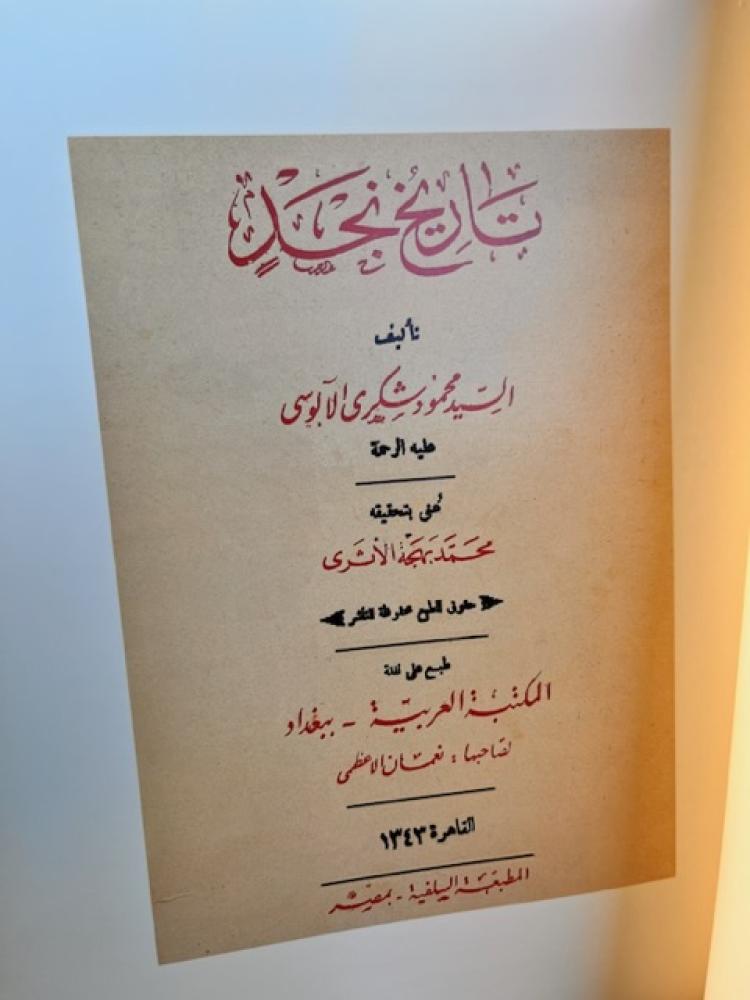 تاريخ نجد
تأليف
السيد محمود شكري الآلوسي
عليه الرحمة
عُني بتحقيقه
محمد بهجة الأثري
حقوق الطبع محفوظة للناشر
طبع على نفقة
المكتبة العربية - ببغداد
لصاحبها : نعمان الاعظمي
القاهرة ١٣٤٣
المطبعة السلفية - بمصر